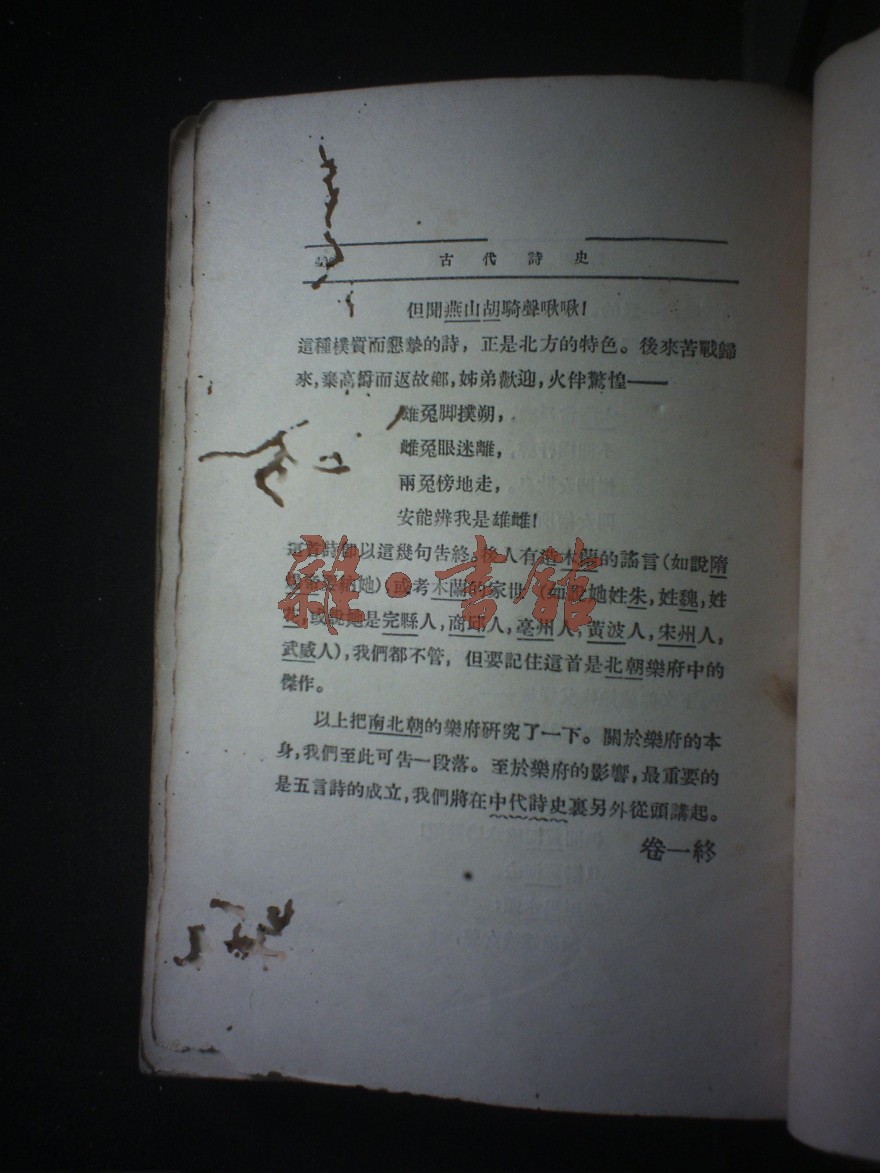 古代詩史
但聞燕山胡騎聲啾啾!
這種樸質而懇摯的詩，正是北方的特色。後來苦戰歸
來，棄高爵而返故鄉，姊弟歡迎，火伴驚惶——
雄兔脚撲朔，
雌兔眼迷離，
兩兔傍地走，
安能辨我是雄雌!
這首詩卽以這幾句告終。後人有造木蘭的謠言(如說隋
她)(或考木蘭的家世(如說她姓朱，姓魏，姓
，或說她是完縣人，商邱人，亳州人，黃波人，宋州人，
武威人)，我們都不管，但要記住這首是北朝樂府中的
傑作。
以上把南北朝的樂府研究了一下。關於樂府的本
身，我們至此可告一段落。至於樂府的影響，最重要的
是五言詩的成立，我們將在中代詩史裏另外從頭講起。
卷一終
雜·書館